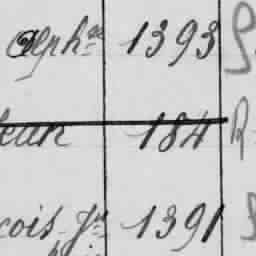 alph.se 1393
Jean 184
cois Jn 1391